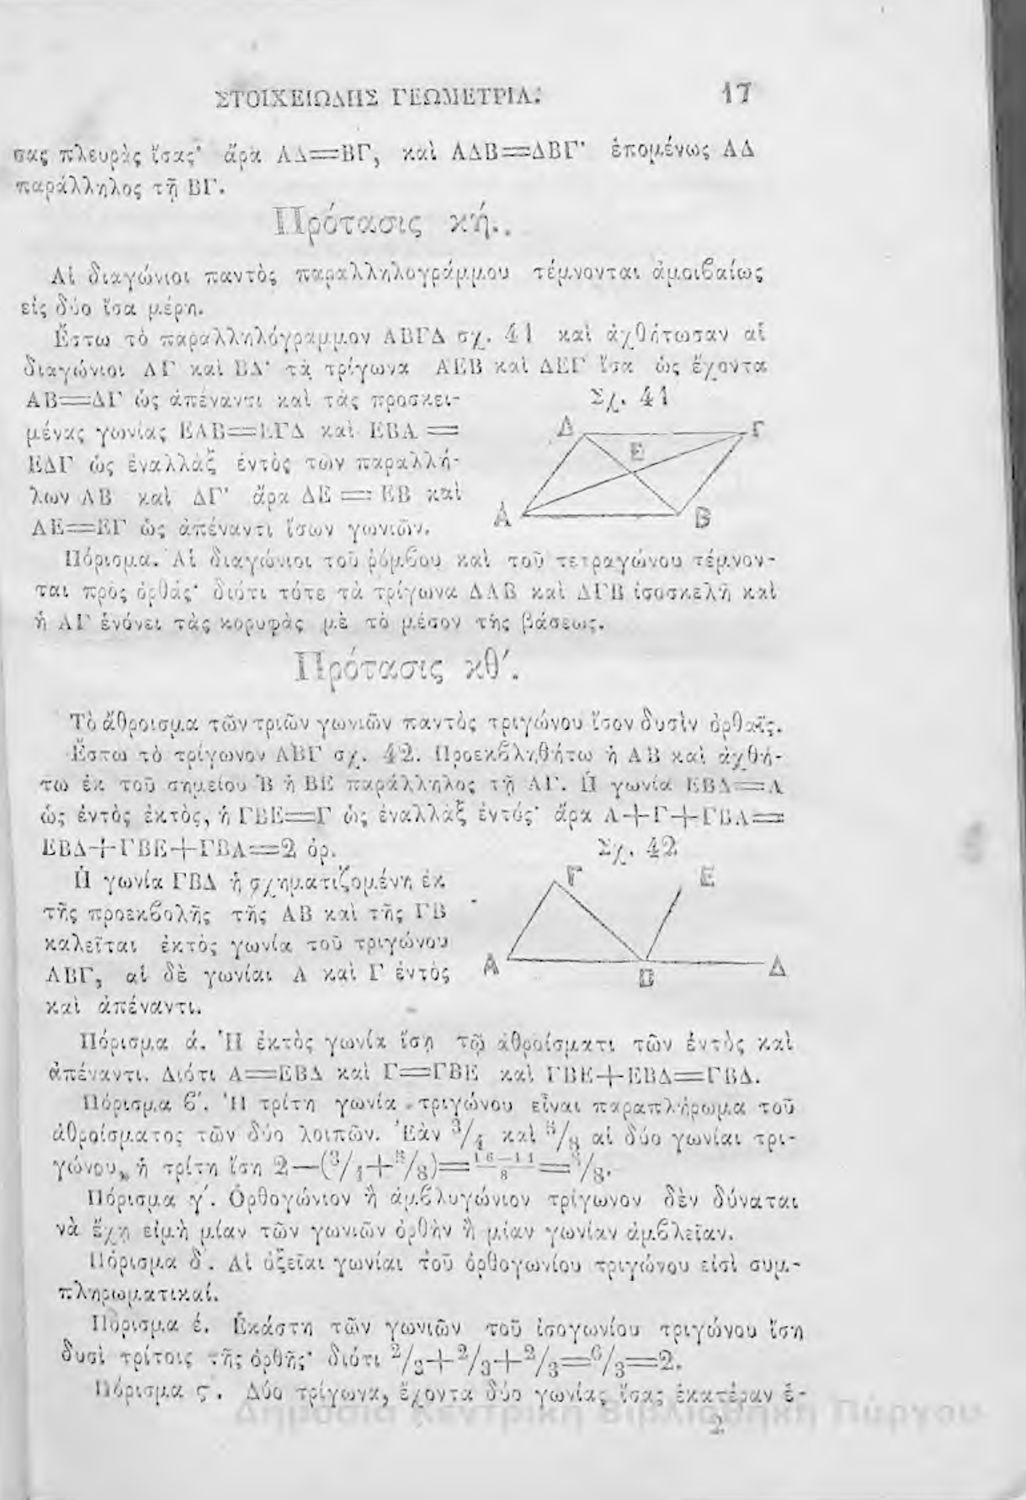 ΣΤΟΙΧΕΙΩΔΗΣ ΓΕΩΜΕΤΡΙΑ. 17
σας πλευρὰς ἴσας· ἄρα ΑΔ=ΒΓ, καὶ ΑΔΒ=ΔΒΓ· ἑπομένως ΑΔ
παράλληλος τῇ ΒΓ.
Πρότασις κή.
Αἱ διαγώνιοι παντὸς παραλληλογράμμου τέμνονται ἀμοιβαίως
εἰς δύο ἴσα μέρη.
Ἔστω τὸ παραλληλόγραμμον ΑΒΓΔ σχ. 41 καὶ ἀχθήτωσαν αἱ
διαγώνιοι ΑΓ καὶ ΒΔ· τὰ τρίγωνα ΑΕΒ καὶ ΔΕΓ ἴσα ὡς ἔχοντα
ΑΒ=ΔΓ ὡς ἀπέναντι καὶ τὰς προσκει-
μένας γωνίας ΕΑΒ=ΕΓΔ καὶ ΕΒΑ =
ΕΔΓ ὡς ἐναλλὰξ ἐντὸς τῶν παραλλή-
λων ΑΒ καὶ ΔΓ· ἄρα ΔΕ = ΕΒ καὶ
ΑΕ=ΕΓ ὡς ἀπέναντι ἴσων γωνιῶν.
Σχ. 41
Δ Γ
Ε
Α Β
Πόρισμα. Αἱ διαγώνιοι τοῦ ῥόμβου καὶ τοῦ τετραγώνου τέμνον-
ται πρὸς ὀρθάς· διότι τότε τὰ τρίγωνα ΔΑΒ καὶ ΔΓΒ ἰσοσκελῆ καὶ
ἡ ΑΓ ἑνόνει τὰς κορυφὰς μὲ τὸ μέσον τῆς βάσεως.
Πρότασις κθ´.
Τὸ ἄθροισμα τῶν τριῶν γωνιῶν παντὸς τριγώνου ἴσον δυσὶν ὀρθαῖς.
Ἔστω τὸ τρίγωνον ΑΒΓ σχ. 42. Προεκβληθήτω ἡ ΑΒ καὶ ἀχθή-
τω ἐκ τοῦ σημείου Β ἡ ΒΕ παράλληλος τῇ ΑΓ. Ἡ γωνία ΕΒΔ=Α
ὡς ἐντὸς ἐκτὸς, ἡ ΓΒΕ=Γ ὡς ἐναλλὰξ ἐντός· ἄρα Α+Γ+ΓΒΑ=
ΕΒΔ+ΓΒΕ+ΓΒΑ=2 ὀρ.
Σχ. 42
Γ Ε
Α Β Δ
Ἡ γωνία ΓΒΔ ἡ σχηματιζομένη ἐκ
τῆς προεκβολῆς τῆς ΑΒ καὶ τῆς ΓΒ
καλεῖται ἐκτὸς γωνία τοῦ τριγώνου
ΑΒΓ, αἱ δὲ γωνίαι Α καὶ Γ ἐντὸς
καὶ ἀπέναντι.
Πόρισμα ά. Ἡ ἐκτὸς γωνία ἴση τῷ ἀθροίσματι τῶν ἐντὸς καὶ
ἀπέναντι. Διότι Α=ΕΒΔ καὶ Γ=ΓΒΕ καὶ ΓΒΕ+ΕΒΔ=ΓΒΔ.
Πόρισμα β´. Ἡ τρίτη γωνία τριγώνου εἶναι παραπλήρωμα τοῦ
ἀθροίσματος τῶν δύο λοιπῶν. Ἐὰν 3/4 καὶ 5/8 αἱ δύο γωνίαι τρι-
γώνου, ἡ τρίτη ἴση 2—(3/4+5/8)=16-11/8=5/8.
Πόρισμα γ´. Ὀρθογώνιον ἢ ἀμβλυγώνιον τρίγωνον δὲν δύναται
νὰ ἔχῃ εἰμὴ μίαν τῶν γωνιῶν ὀρθὴν ἢ μίαν γωνίαν ἀμβλεῖαν.
Πόρισμα δ´. Αἱ ὀξεῖαι γωνίαι τοῦ ὀρθογωνίου τριγώνου εἰσὶ συμ-
πληρωματικαί.
Πόρισμα έ. Ἑκάστη τῶν γωνιῶν τοῦ ἰσογωνίου τριγώνου ἴση
δυσὶ τρίτοις τῆς ὀρθῆς· διότι 2/3+2/3+2/3=6/3=2.
Πόρισμα ς´. Δύο τρίγωνα, ἔχοντα δύο γωνίας ἴσας ἑκατέραν ἑ-
2
Δημόσια Κεντρική Βιβλιοθήκη Πύργου